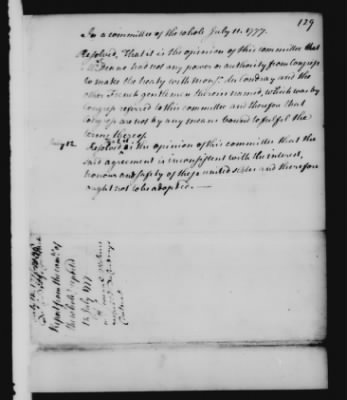 129
In a committee of the whole July 11. 1777.
Resolved, That it is the opinion of this committee that
Mr. Deane had not any power or authority from congress
to make the treaty with Monsr. du Coudray and the
other French gentlemen therein named, which was by
Congress referred to this committee and therefore that
congress are not by any means bound to fulfil the
terms thereof.
July 12 Resolved as the opinion of this committee that the
said agreement is inconsistent with the interest,
honour and safety of these united states and therefore
ought not to be adopted. —
Report from the comee. of
the whole
July 1777